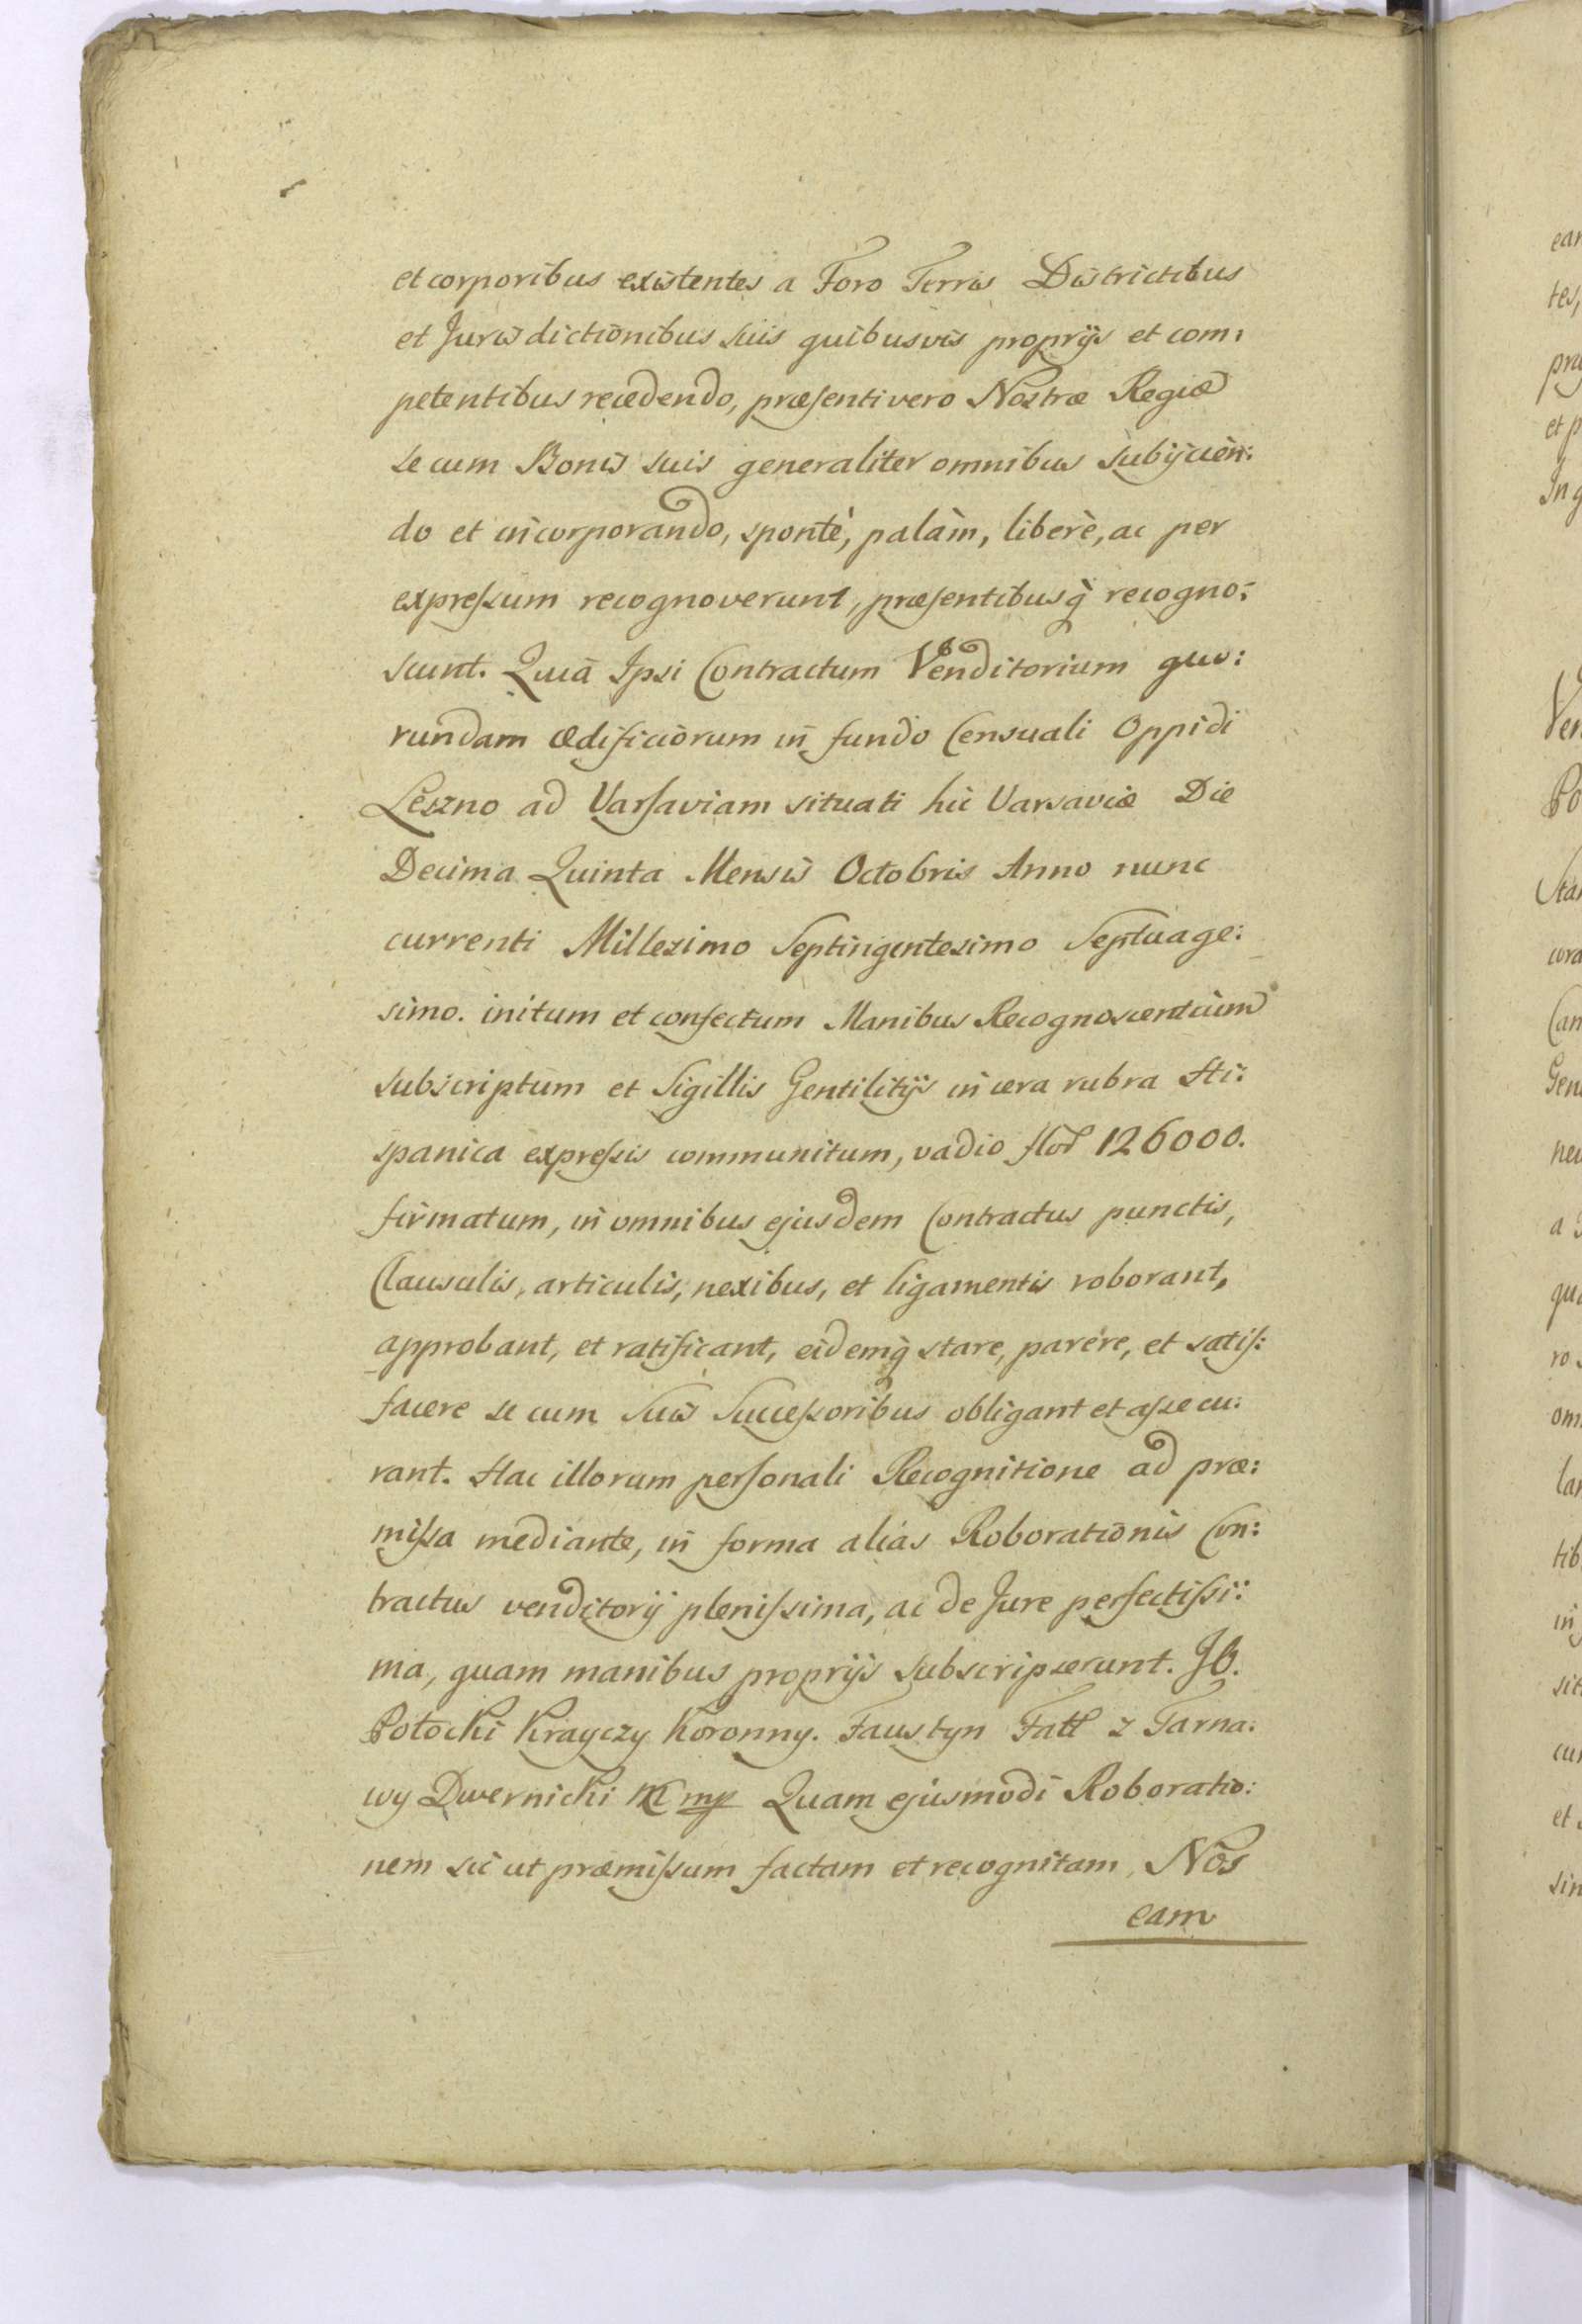 et corporibus existentes a Foro Terris Districtibus
et Jurisdictionibus suis quibusvis proprijs et com:
petentibus recedendo, præsenti vero Nostræ Regiæ
se cum Bonis suis generaliter omnibus subijcien:
do et incorporando, spontè, palàm, liberè, ac per
expressum recognoverunt, præsentibusq̀ recogno:
scunt. Quia Ipsi Contractum Venditorium quo:
rundam ædificiorum in fundo Censuali Oppidi
Leszno ad Varsaviam situati hic Varsaviæ Die
Decima Quinta Mensis Octobris Anno nunc
currenti Millesimo Septingentesimo Septuage:
simo. initum et confectum Manibus Recognoscentium
subscriptum et Sigillis Gentilitijs in cera rubra Hi:
spanica expressis communitum, vadio flor 126000.
firmatum, in omnibus ejusdem Contractus punctis,
Clausulis, articulis, nexibus, et ligamentis roborant,
approbant, et ratificant, eidemq̀ stare, parere, et satis:
facere se cum Suis Successoribus obligant et assecu:
rant. Hac illorum personali Recognitione ad præ:
missa mediante, in forma alias Roborationis Con:
tractus venditorij plenissima, ac de Jure perfectissi:
ma, quam manibus proprijs subscripserunt. J
Potocki Krayczy Koronny. Faustyn Fatt z Tarna:
wy Dwernicki mp Quam ejusmodi Roboratio:
nem sic ut præmissum factam et recognitam, Nos
eam